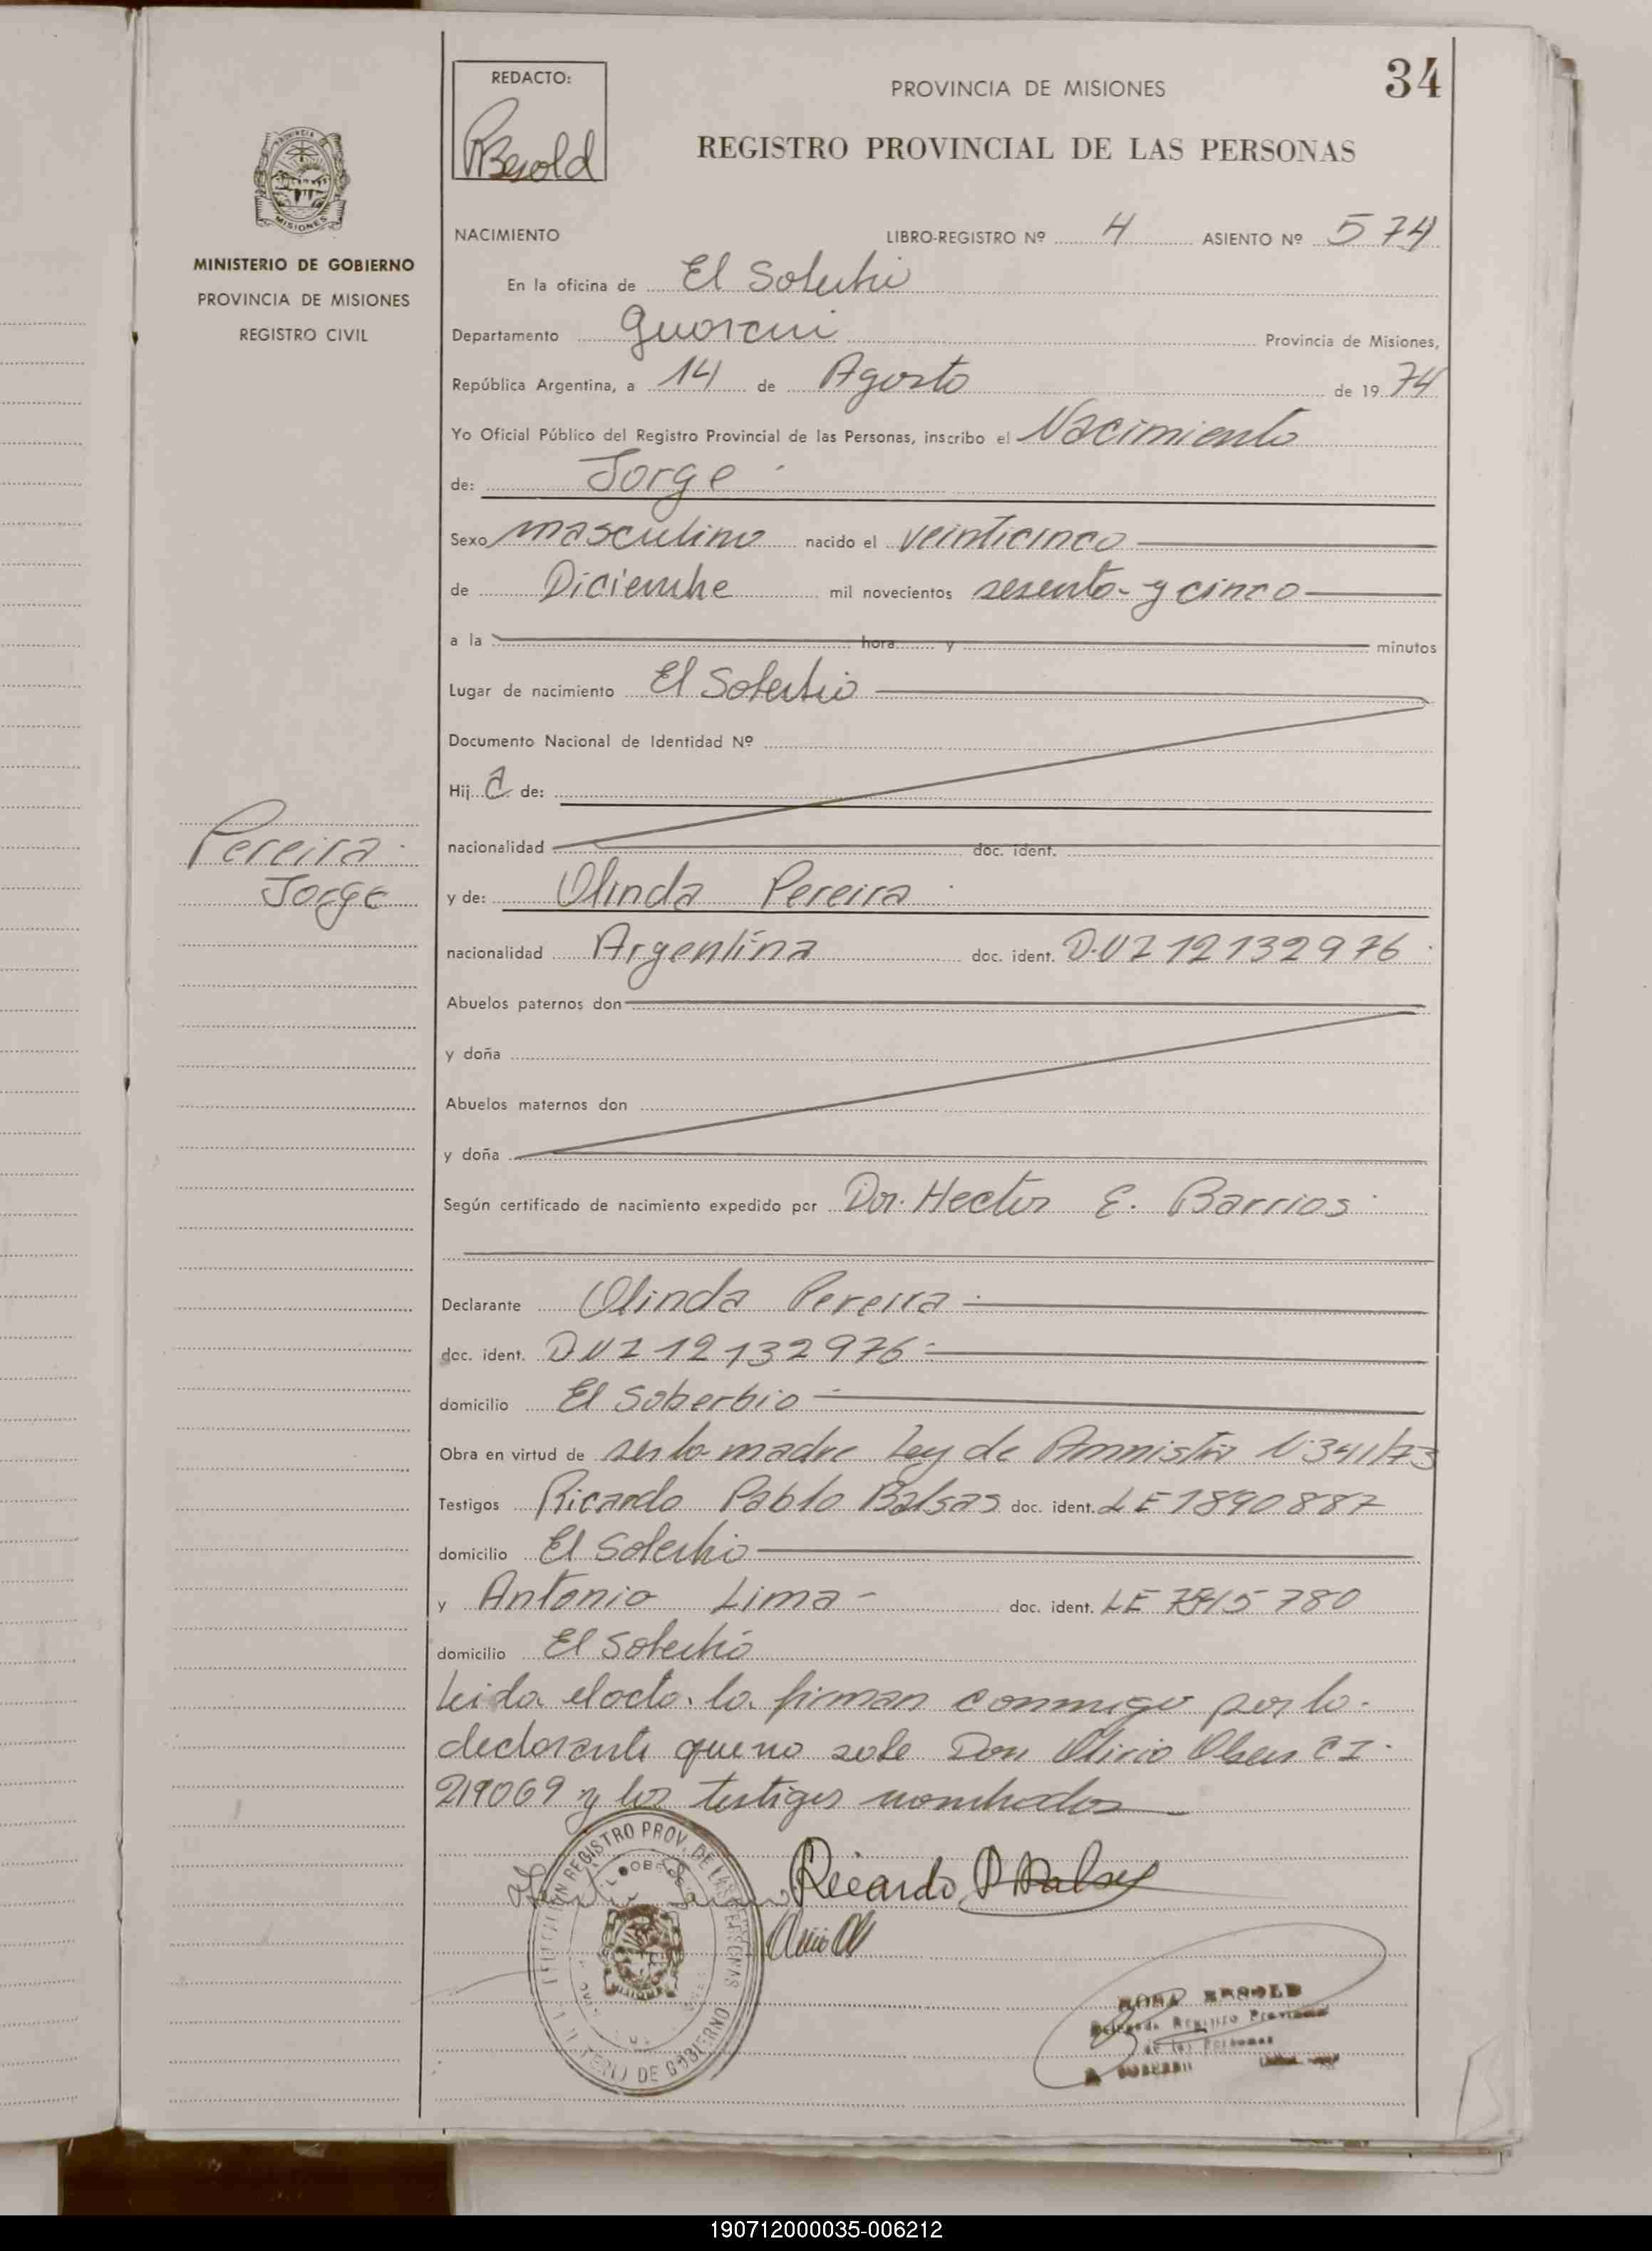 34
REDACTO:
PBesold
PROVINCIA DE MISIONES
REGISTRO PROVINCIAL DE LAS PERSONAS
MINISTERIO DE GOBIERNO
PROVINCIA DE MISIONES
REGISTRO CIVIL
NACIMIENTO LIBRO-REGISTRO Nº 4 ASIENTO Nº 574
En la oficina de El Soberbio
Departamento Guarani Provincia de Misiones,
República Argentina, a 14 de Agosto de 1974
Yo Oficial Público del Registro Provincial de las Personas, inscribo el Nacimiento
de: Jorge
Sexo masculino nacido el veinticinco
de Diciembre mil novecientos sesenta y cinco
a la hora y minutos
Lugar de nacimiento El Soberbio
Documento Nacional de Identidad Nº
Hij de:
nacionalidad doc. ident.
Pereira
Jorge
y de: Olinda Pereira
nacionalidad Argentina doc. ident. D.U 2 12132976
Abuelos paternos don
y doña
Abuelos maternos don
y doña
Según certificado de nacimiento expedido por Dor. Hector E. Barrios
Declarante Olinda Pereira
doc. ident. DU 2 12132976
domicilio El Soberbio
Obra en virtud de ser la madre Ley de Amnistia N° 341/73
Testigos Ricardo Pablo Balsas doc. ident. LE 1890887
domicilio El Soberbio
y Antonio Lima doc. ident. LE 780
domicilio El Soberbio
Leida el acta la firman conmigo por la
declarante que no sabe Don Olirio Olsen CI.
219069 y los testigos nombrados
REGISTRO PROV. DE LAS PERSONAS
DE GOBIERNO
Ricardo P Balsas
ROSA BESOLD
Delegada Registro Provincial
de las Personas
EL SOBERBIO
190712000035-006212